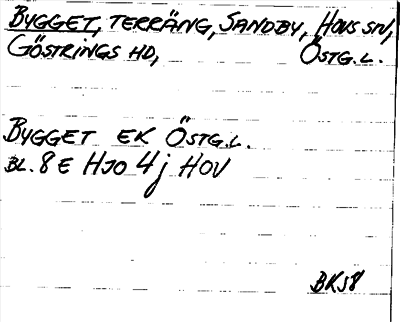 BYGGET, TERRÄNG, SANDBY, HOVS SN,
GÖSTRINGS HD, ÖSTG. L.
BYGGET EK ÖSTG. L.
BL. 8 E HJO 4j HOV
BKS8